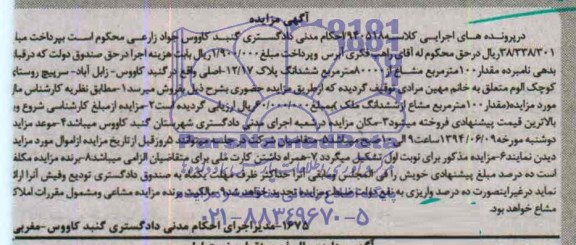 آگهی مزایده
درپرونده های اجرایی کلاسه ۹۴۰۵۱۸/احکام مدنی دادگستری گنبد کاووس جواد زارعی محکوم است بپرداخت مبلغ
۳۸/۳۳۸/۳۰۱ریال درحق محکوم له آقای راهب فکری آبرس وپرداخت مبلغ ۱/۹۰۰/۰۰۰ریال بابت هزینه اجرا درحق صندوق دولت که درقبال
بدهی نامبرده مقدار ۱۰۰مترمربع مشاع از ۸۰۰۰۰مترمربع ششدانگ پلاک ۱۲/۷-اصلی واقع در گنبد کاووس- زابل آباد- سرپیچ روستای
کوچک الوم متعلق به خانم مهین مرادی توقیف گردیده که ازطریق مزایده حضوری بشرح ذیل بفروش میرسد ۱-مطابق نظریه کارشناس
مورد مزایده(مقدار ۱۰۰مترمربع مشاع ازششدانگ ملک )بمبلغ ۶۰/۰۰۰/۰۰۰ریال ارزیابی گردیده است۲-مزایده ازمبلغ کارشناسی شروع و
بالاترین قیمت پیشنهادی فروخته میشود۳-مکان مزایده درشعبه اجرای مدنی دادگستری شهرستان گنبد کاووس میباشد۴-موعد مزاید
دوشنبه مورخه ۱۳۹۴/۰۶/۰۹ساعت ۹الی ۱۰ متقاضیان شرکت در جلسه میتوانند روزقبل ازتاریخ مزایده ازاموال مورد مزاید
دیدن نمایند۶-مزایده مذکور برای نوبت اول تشکیل میگردد ۷-همراه داشتن کارت ملی برای متقاضیان الزامی میباشد۸-برنده مزایده مکلف
است ده درصد مبلغ پیشنهادی خویش را فی المجلس ومابقی آنرا حداکثر ظرف یکماه به صندوق دادگستری تودیع وفیش آنرا ارائه
نماید درغیراینصورت ده درصد واریزی به نفع دولت ضبط ومزایده تجدید خواهد شد۹-مالکیت برنده مزایده مشاعی ومشمول مقررات املاک
مشاع خواهد بود.
۱۶۷۵-مدیراجرای احکام مدنی دادگستری گنبد کاووس-مقربی
۰۲۱-۸۸۳۴۹۶۷۰-۵